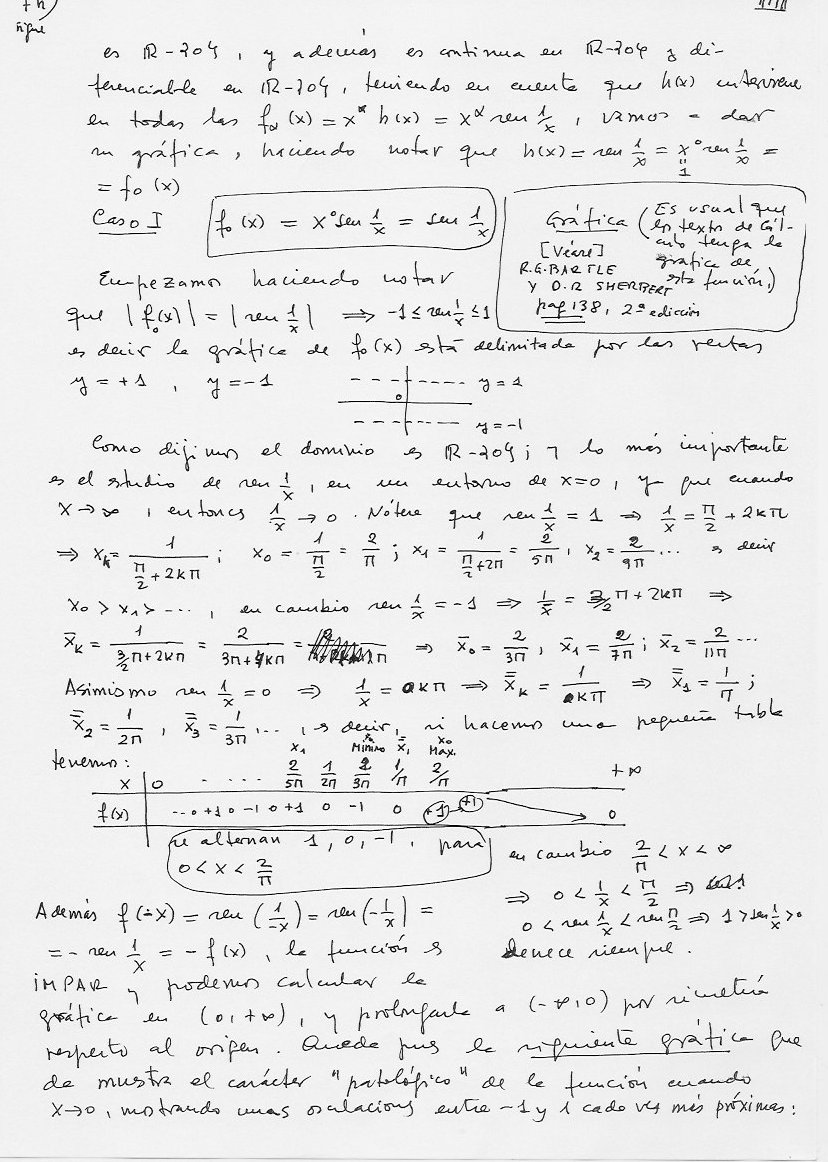 sigue
es ℝ-{0}, y además es continua en ℝ-{0} y di-
ferenciable en ℝ-{0}, teniendo en cuenta que h(x) interviene
en todas las f_α(x) = x^α h(x) = x^α sen 1/x, vamos a dar
su gráfica, haciendo notar que h(x) = sen 1/x = x° sen 1/x =
= f₀(x)
Caso I
f₀(x) = x° sen 1/x = sen 1/x
Gráfica (Es usual que
los textos de Cál-
culo tenga la
gráfica de
esta función,)
[Véase]
R.G. BARTLE
Y D.R SHERBERT
pag 138, 2ª edición
Empezamos haciendo notar
que |f₀(x)| = |sen 1/x| ⟹ -1 ≤ sen 1/x ≤ 1
es decir la gráfica de f₀(x) está delimitada por las rectas
y = +1, y = -1
y = 1
0
y = -1
Como dijimos el dominio es ℝ-{0}; y lo más importante
es el studio de sen 1/x, en un entorno de x=0, ya que cuando
x → ∞, entonces 1/x → 0. Nótese que sen 1/x = 1 ⟹ 1/x = π/2 + 2kπ
⟹ x_k = 1/(π/2 + 2kπ); x₀ = 1/(π/2) = 2/π; x₁ = 1/(π/2 + 2π) = 2/5π, x₂ = 2/9π ... es decir
x₀ > x₁ > ..., en cambio sen 1/x = -1 ⟹ 1/x = 3/2 π + 2kπ ⟹
x̄_k = 1/(3/2 π + 2kπ) = 2/(3π + 4kπ) = ⟹ x̄₀ = 2/3π, x̄₁ = 2/7π; x̄₂ = 2/11π ...
Asimismo sen 1/x = 0 ⟹ 1/x = kπ ⟹ x̿_k = 1/kπ ⟹ x̿₁ = 1/π;
x̿₂ = 1/2π, x̿₃ = 1/3π ..., es decir, si hacemos una pequeña tabla
tenemos:
x₁ Mínimo x̿₁ x₀ Max.
x | 0 ..... 2/5π 1/2π 2/3π 1/π 2/π +∞
f(x) | ... 0 +1 0 -1 0 +1 0 -1 0 +1 → +1 0
se alternan 1, 0, -1, para
0 < x < 2/π
en cambio 2/π < x < ∞
⟹ 0 < 1/x < π/2 ⟹
0 < sen 1/x < sen π/2 ⟹ 1 > sen 1/x > 0
decrece siempre.
Además f(-x) = sen (1/-x) = sen (-1/x) =
= - sen 1/x = - f(x), la función es
IMPAR y podemos calcular la
gráfica en (0, +∞), y prolongarla a (-∞, 0) por simetría
respecto al origen. Queda pues la siguiente gráfica que
de muestra el carácter "patológico" de la función cuando
x → 0, mostrando unas oscilaciones entre -1 y 1 cada vez más próximas: